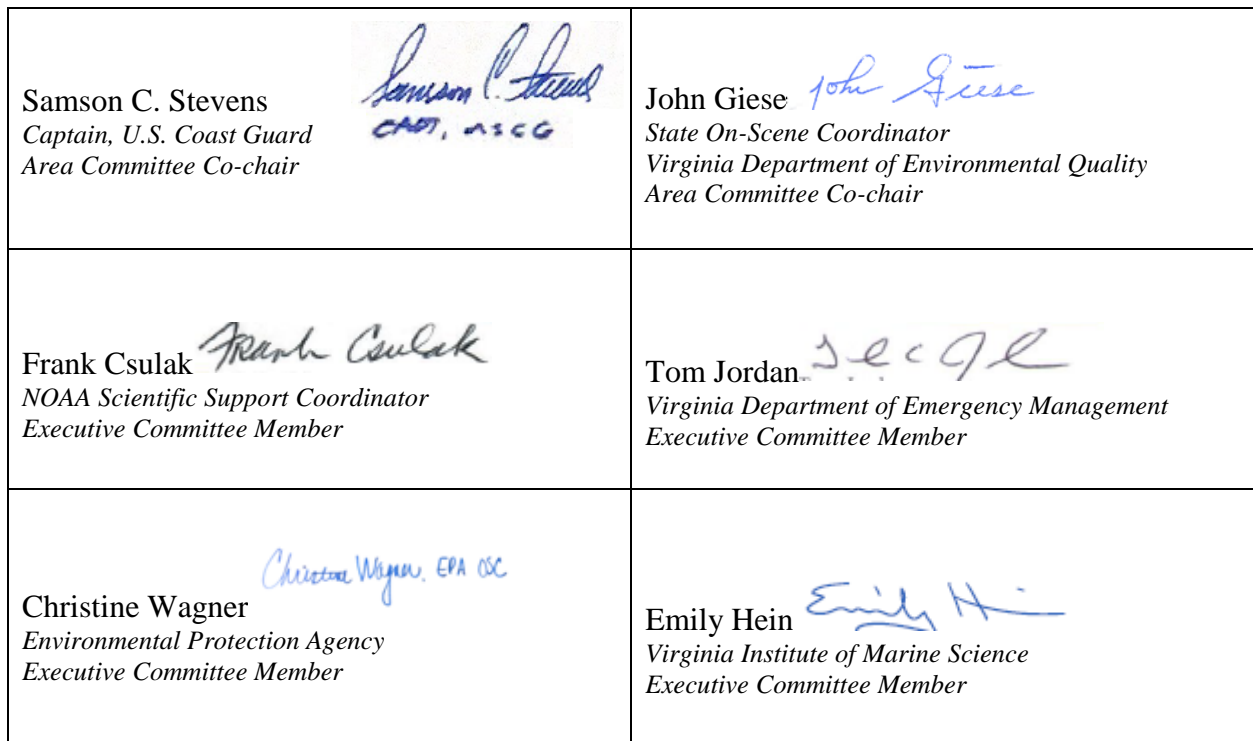 Samson C. Stevens
Samson C. Stevens
CAPT, USCG
Captain, U.S. Coast Guard
Area Committee Co-chair
John Giese John Giese
State On-Scene Coordinator
Virginia Department of Environmental Quality
Area Committee Co-chair
Frank Csulak Frank Csulak
NOAA Scientific Support Coordinator
Executive Committee Member
Tom Jordan
Virginia Department of Emergency Management
Executive Committee Member
Christine Wagner, EPA OSC
Christine Wagner
Environmental Protection Agency
Executive Committee Member
Emily Hein Emily Hein
Virginia Institute of Marine Science
Executive Committee Member